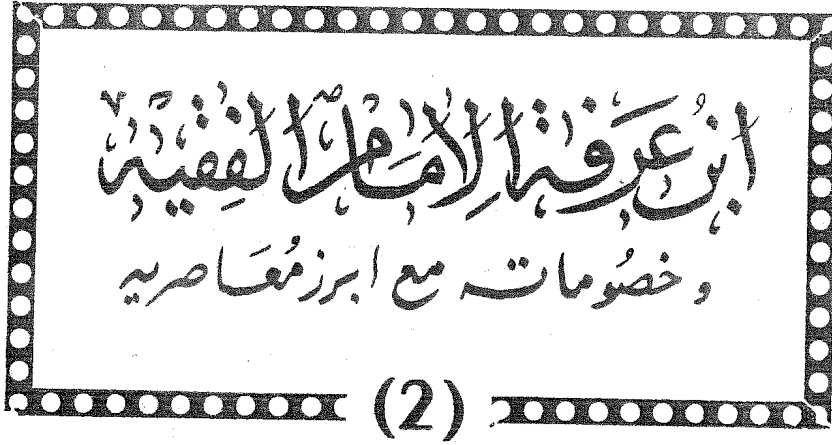 ابنُ عَرَفة الإمَام الفِقيه
وخصُوماته مع ابرز مُعَاصريه
(2)